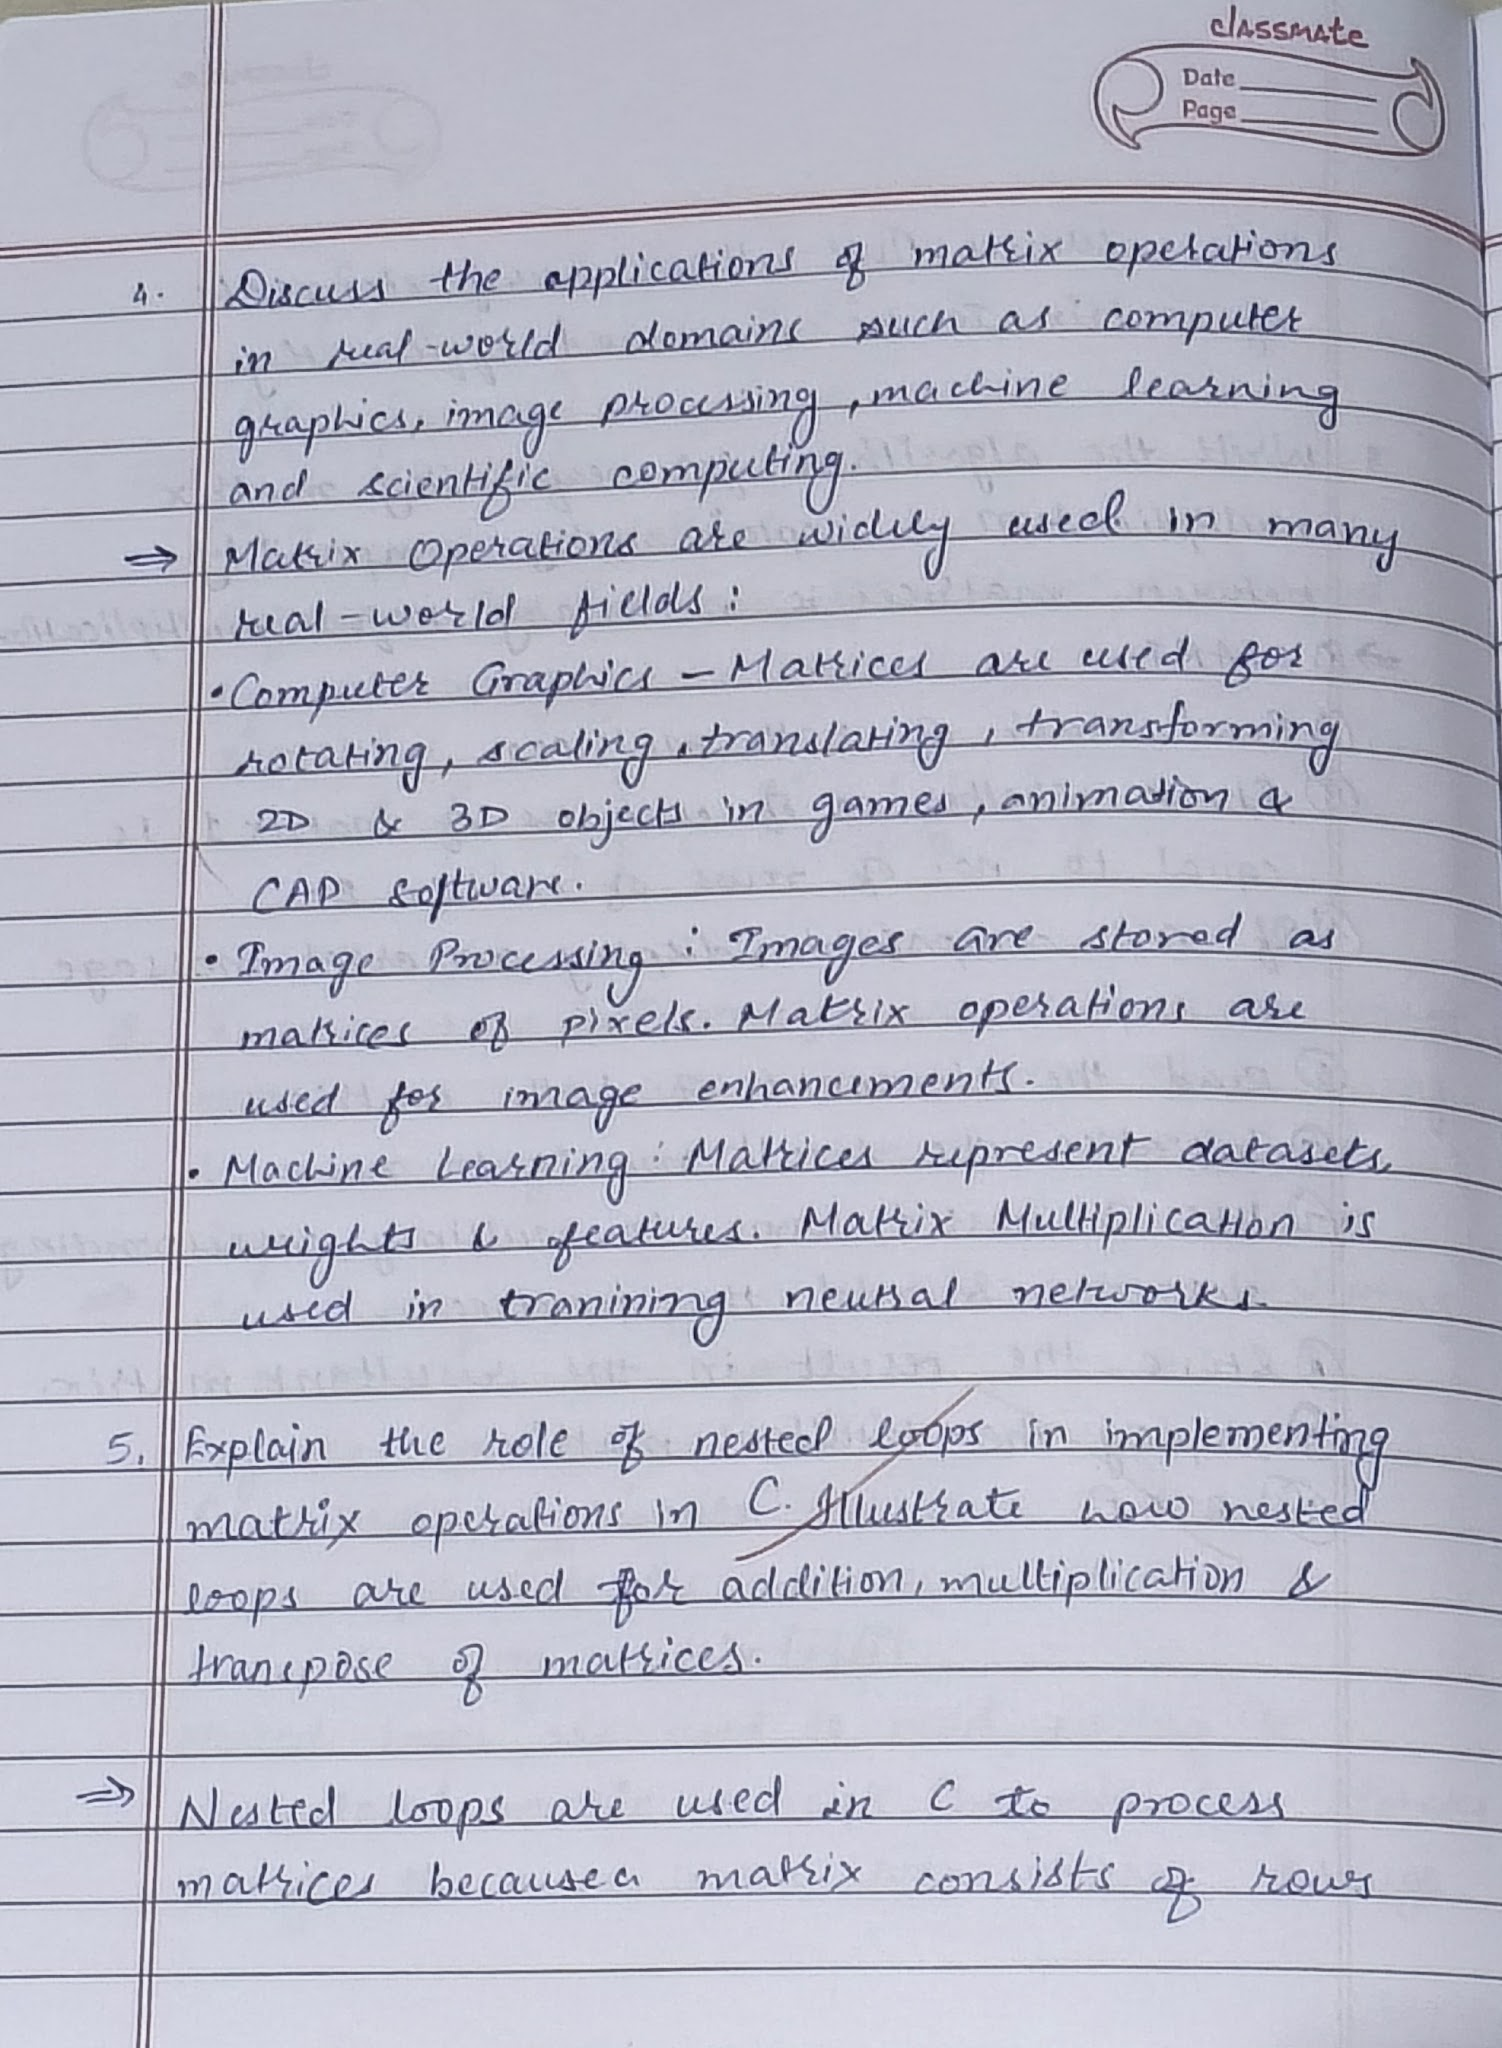 classmate
Date
Page
4. Discuss the applications of matrix operations
in real-world domains such as computer
graphics, image processing, machine learning
and scientific computing.
⇒ Matrix Operations are widely used in many
real-world fields:
• Computer Graphics - Matrices are used for
rotating, scaling, translating, transforming
2D & 3D objects in games, animation &
CAD software.
• Image Processing: Images are stored as
matrices of pixels. Matrix operations are
used for image enhancements.
• Machine Learning: Matrices represent datasets,
weights & features. Matrix Multiplication is
used in tranining neural networks.
5. Explain the role of nested loops in implementing
matrix operations in C. Illustrate how nested
loops are used for addition, multiplication &
transpose of matrices.
⇒ Nested loops are used in C to process
matrices because a matrix consists of rows